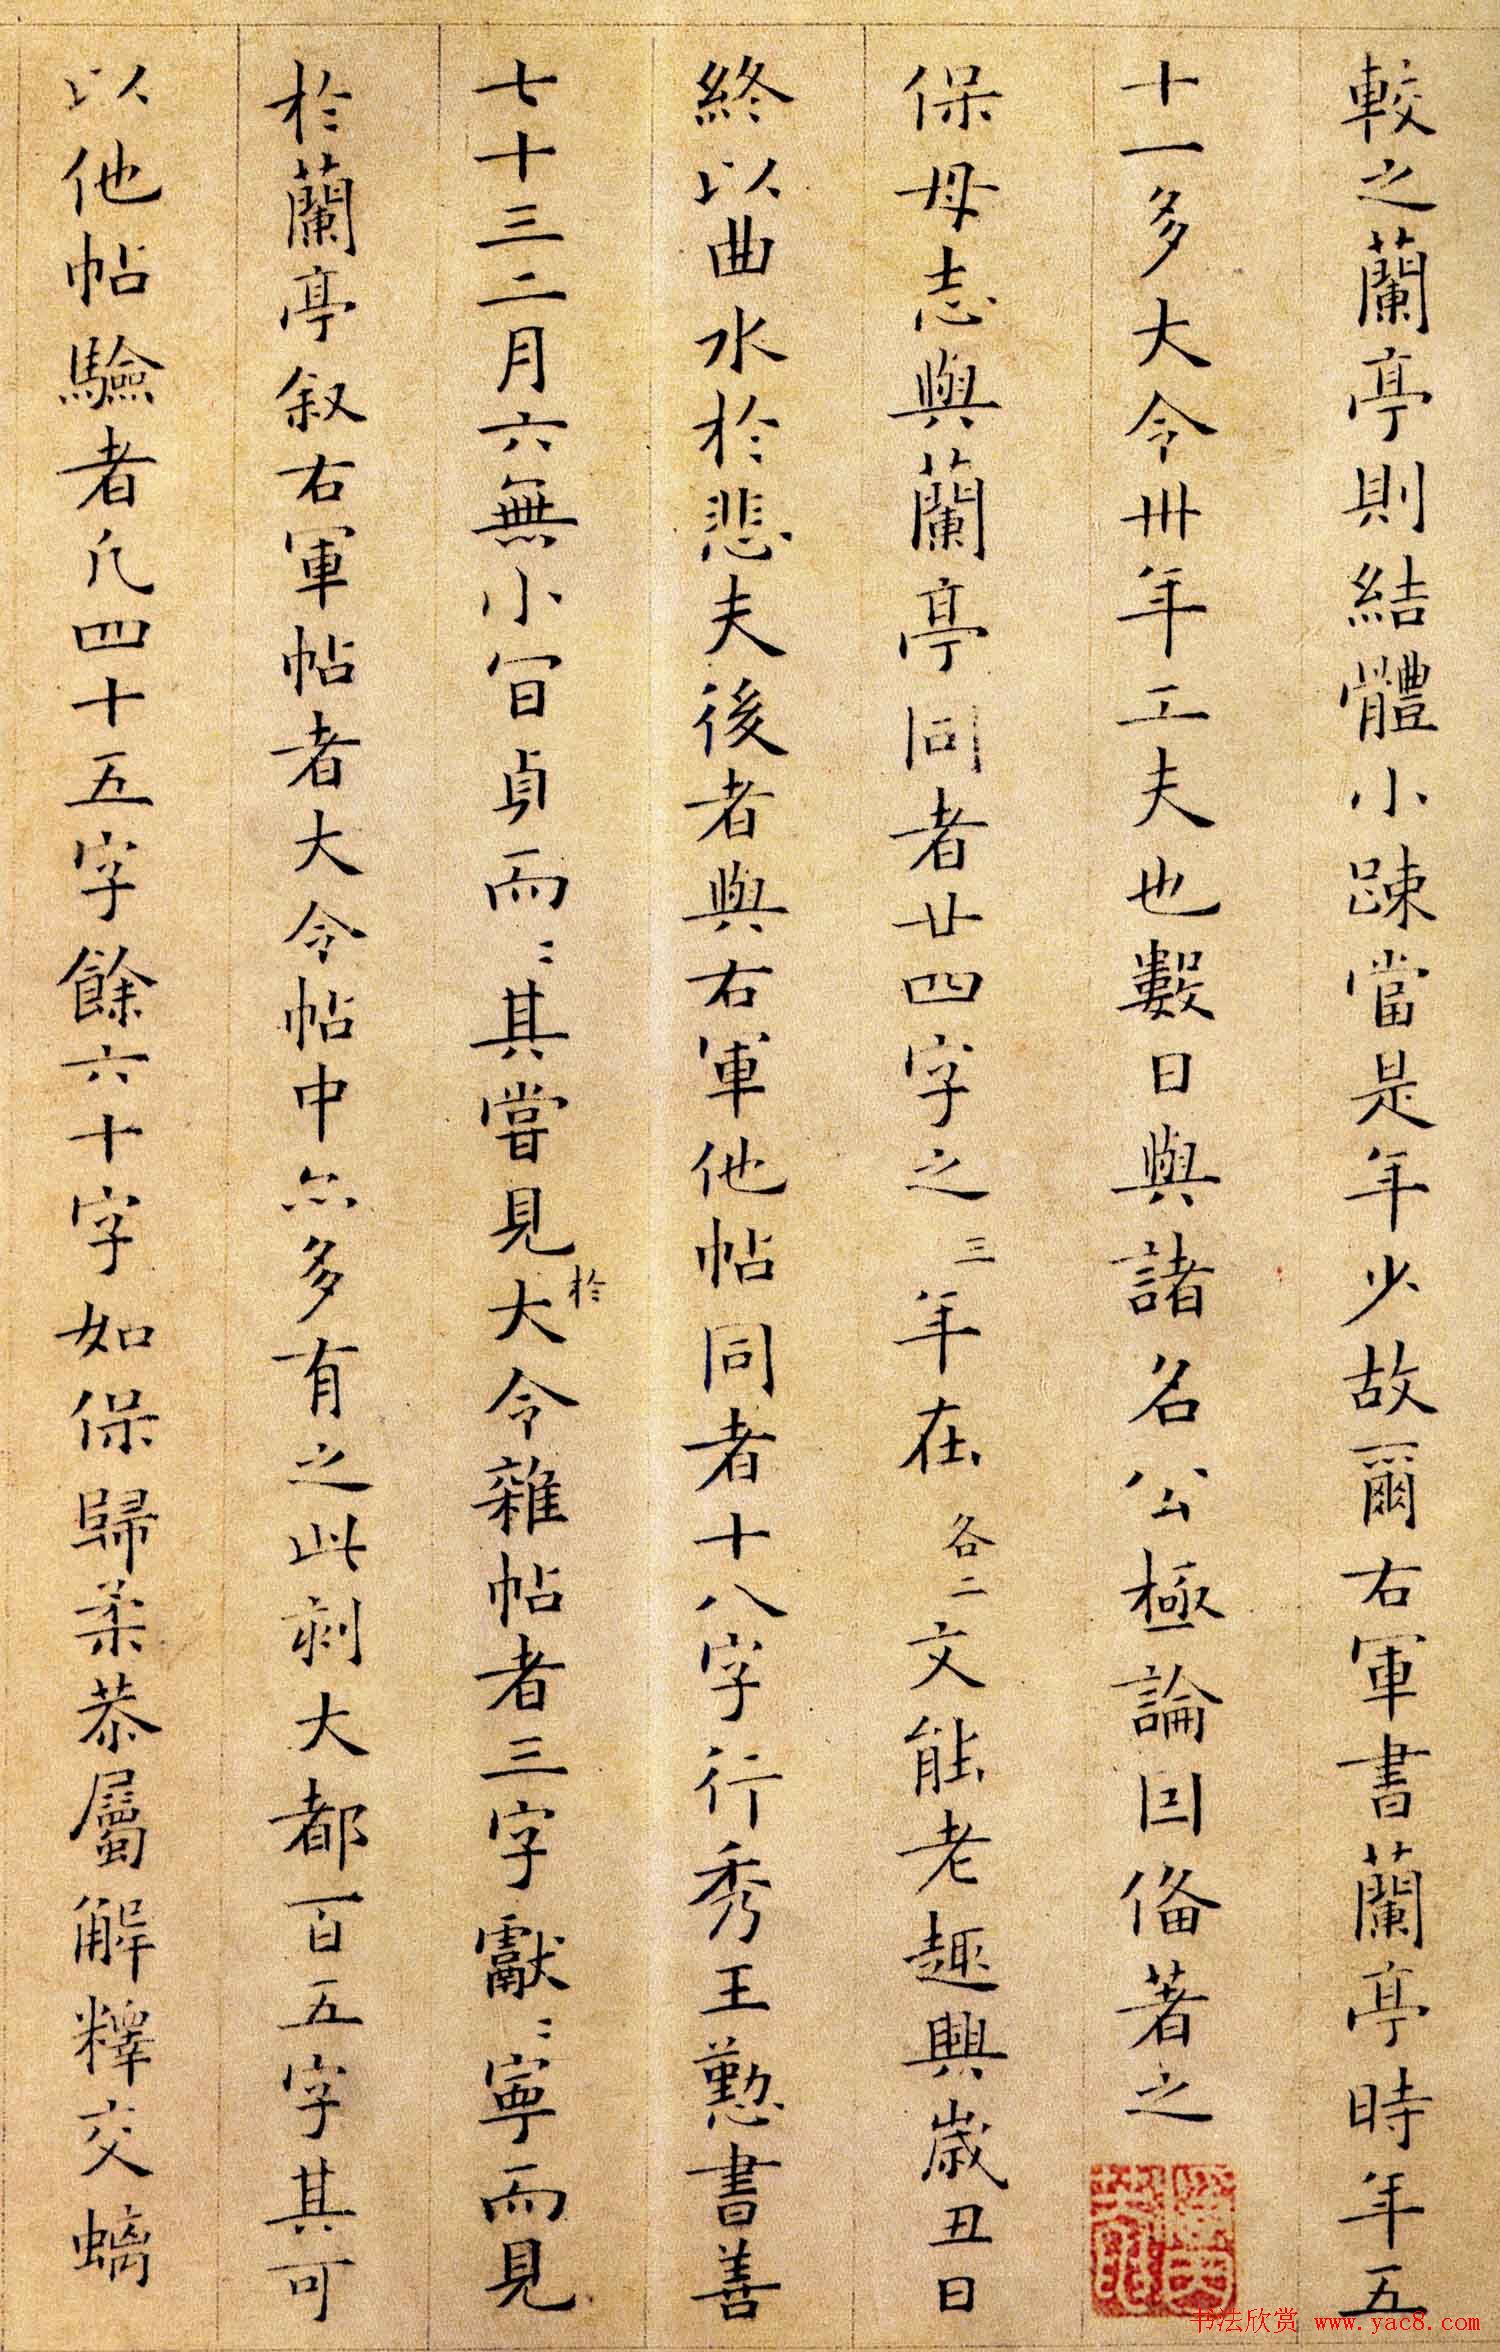 較之蘭亭則結體小踈當是年少故爾右軍書蘭亭時年五
十一多大令卅年工夫也數日與諸名公極論回俻著之
保母志與蘭亭同者廿四字之三年在各二文能老趣興嵗丑日
終以曲水於悲夫後者與右軍他帖同者十八字行秀王懃書善
七十三二月六無小冝貞而〻其嘗見於大令雜帖者三字獻〻寧而見
於蘭亭叙右軍帖者大令帖中亦多有之此刻大都百五字其可
以他帖驗者凡四十五字餘六十字如保歸柔恭屬解釋交螭
书法欣赏 www.yac8.com